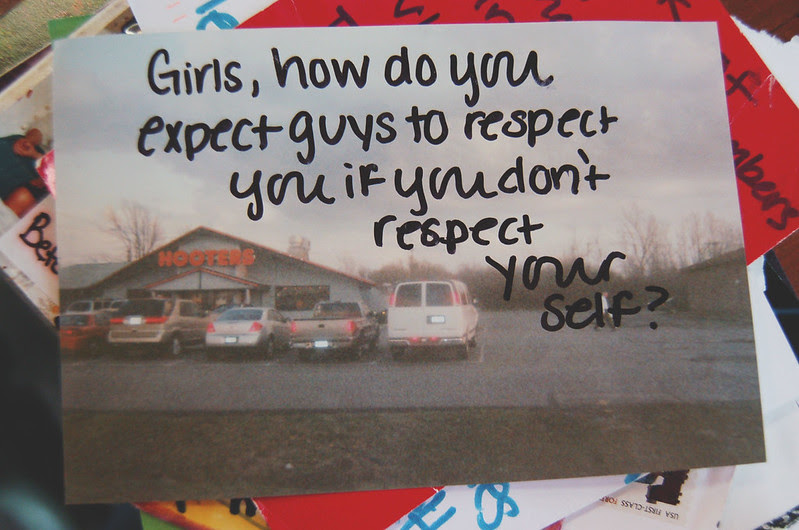 Girls, how do you
expect guys to respect
you if you don't
respect
your
self?
HOOTERS
mbers
Bet
USA FIRST-CLASS FOR